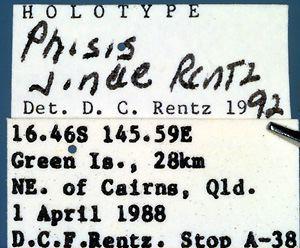 HOLOTYPE
Phisis
jinae Rentz
Det. D. C. Rentz 1992
16.46S 145.59E
Green Is., 28km
NE. of Cairns, Qld.
1 April 1988
D.C.F.Rentz. Stop A-38